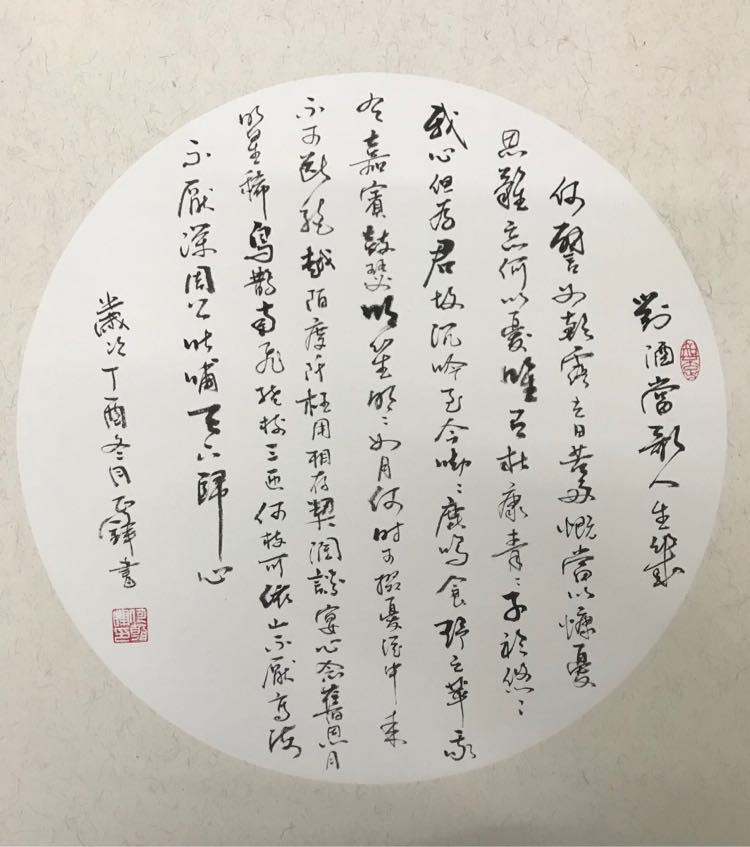 對酒當歌人生幾
何譬如朝露去日苦多慨當以慷憂
思難忘何以憂唯有杜康青〻子衿悠〻
我心但為君故沉吟至今呦〻鹿鳴食野之苹我
有嘉賓鼓瑟吹笙明〻如月何時可掇憂從中來
不可斷絕越陌度阡枉用相存契闊談宴心念舊恩月
明星稀烏鵲南飛繞樹三匝何枝可依山不厭高海
不厭深周公吐哺天下歸心
歲次丁酉冬月書